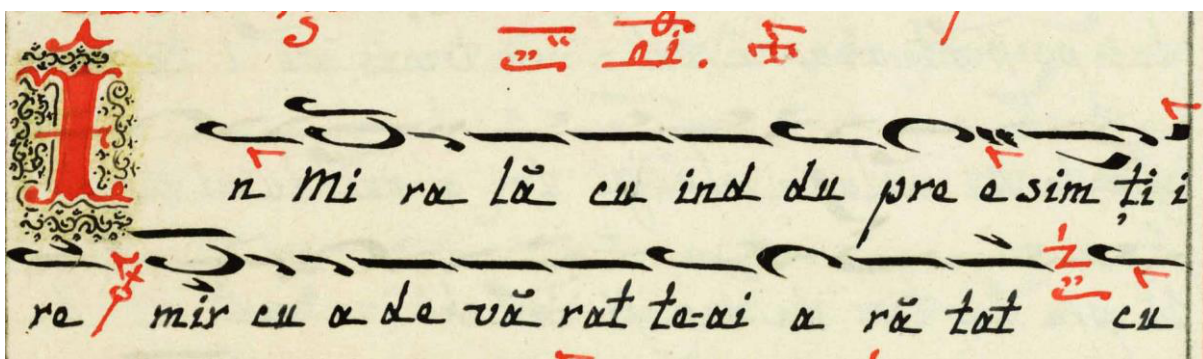 În Mi ra lă cu ind du pre e sim ți i
re mir cu a de vă rat te-ai a ră tat cu